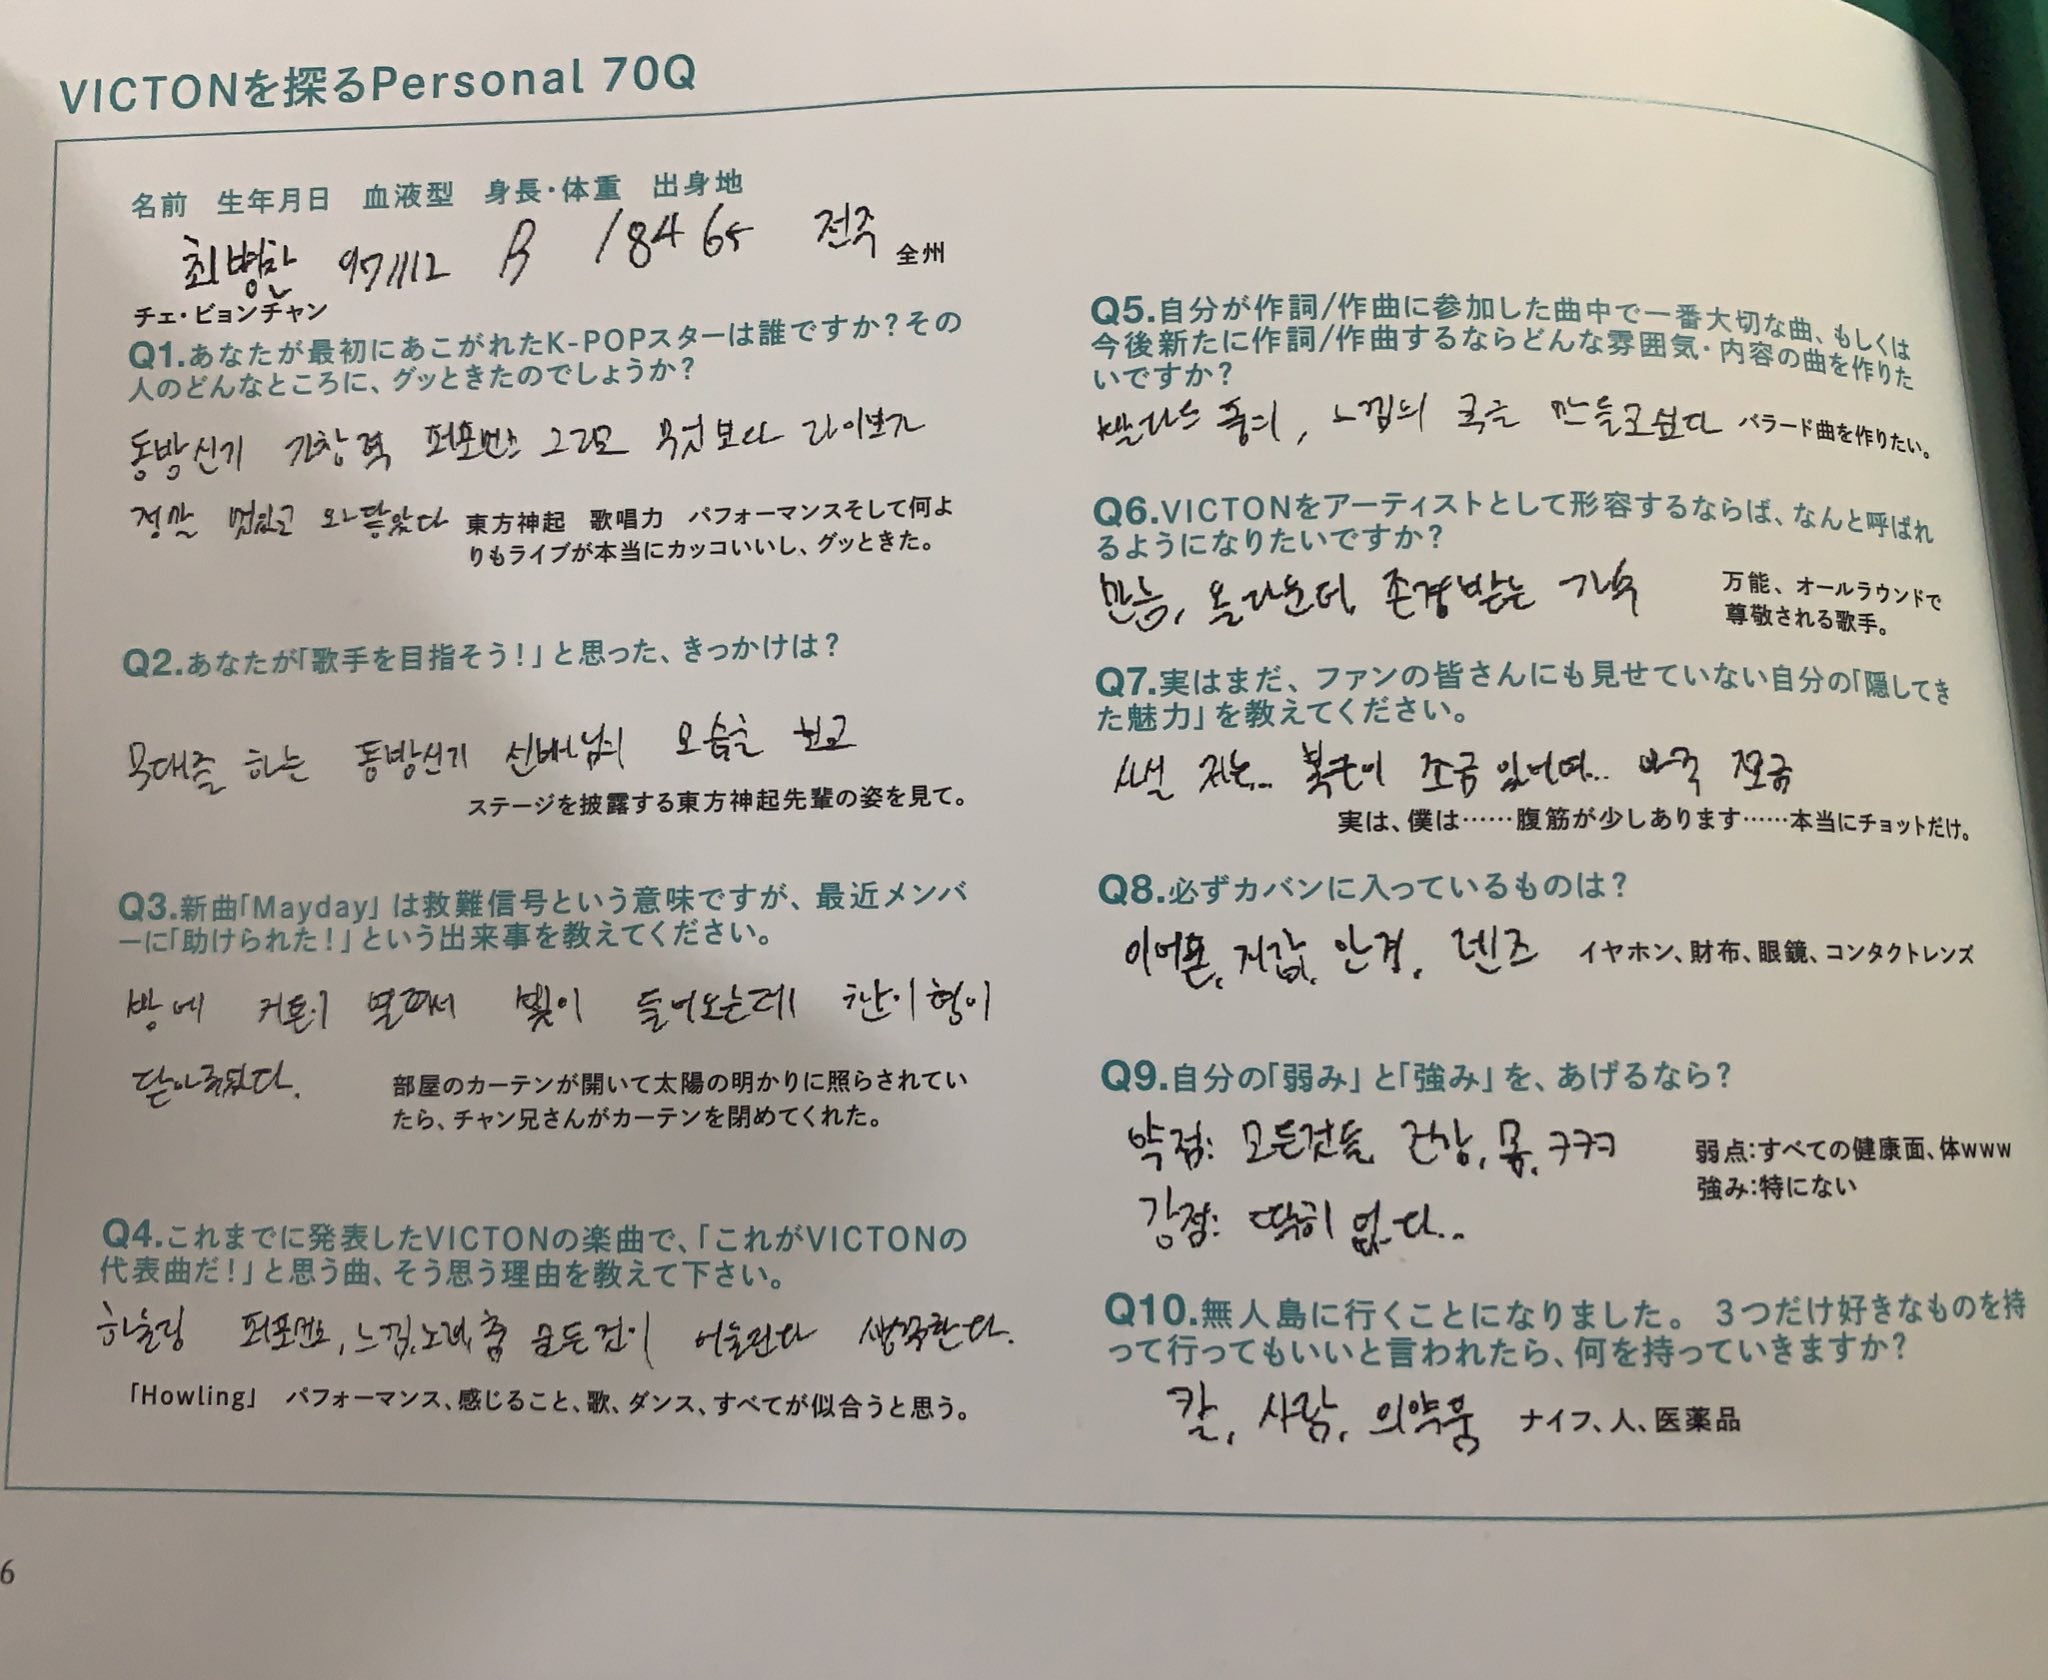 VICTONを探るPersonal 70Q
名前　生年月日　血液型　身長・体重　出身地
최병찬 971112 B 184 65 전주 全州
チェ・ビョンチャン
Q1.あなたが最初にあこがれたK-POPスターは誰ですか？その
人のどんなところに、グッときたのでしょうか？
동방신기 가창력 퍼포먼스 그리고 무엇보다 라이브가
정말 멋있고 와닿았다 東方神起　歌唱力　パフォーマンスそして何よ
りもライブが本当にカッコいいし、グッときた。
Q2.あなたが「歌手を目指そう！」と思った、きっかけは？
무대를 하는 동방신기 선배님의 모습을 보고
ステージを披露する東方神起先輩の姿を見て。
Q3.新曲「Mayday」は救難信号という意味ですが、最近メンバ
ーに「助けられた！」という出来事を教えてください。
방에 커튼이 열려서 빛이 들어오는데 찬이형이
닫아주었다. 部屋のカーテンが開いて太陽の明かりに照らされてい
たら、チャン兄さんがカーテンを閉めてくれた。
Q4.これまでに発表したVICTONの楽曲で、「これがVICTONの
代表曲だ！」と思う曲、そう思う理由を教えて下さい。
하울링 퍼포먼스, 느낌, 노래, 춤 모든것이 어울린다 생각한다.
「Howling」　パフォーマンス、感じること、歌、ダンス、すべてが似合うと思う。
Q5.自分が作詞/作曲に参加した曲中で一番大切な曲、もしくは
今後新たに作詞/作曲するならどんな雰囲気・内容の曲を作りた
いですか？
발라드 풍의, 느낌의 곡을 만들고싶다 バラード曲を作りたい。
Q6.VICTONをアーティストとして形容するならば、なんと呼ばれ
るようになりたいですか？
만능, 올라운더, 존경받는 가수 万能、オールラウンドで
尊敬される歌手。
Q7.実はまだ、ファンの皆さんにも見せていない自分の「隠してき
た魅力」を教えてください。
사실 저는... 복근이 조금 있어여... 아주 쪼금
実は、僕は……腹筋が少しあります……本当にチョットだけ。
Q8.必ずカバンに入っているものは？
이어폰, 지갑, 안경, 렌즈 イヤホン、財布、眼鏡、コンタクトレンズ
Q9.自分の「弱み」と「強み」を、あげるなら？
약점: 모든것들, 건강, 몸, ㅋㅋㅋ 弱点：すべての健康面、体www
강점: 딱히 없다.. 強み：特にない
Q10.無人島に行くことになりました。 3つだけ好きなものを持
って行ってもいいと言われたら、何を持っていきますか？
칼, 사람, 의약품 ナイフ、人、医薬品
6